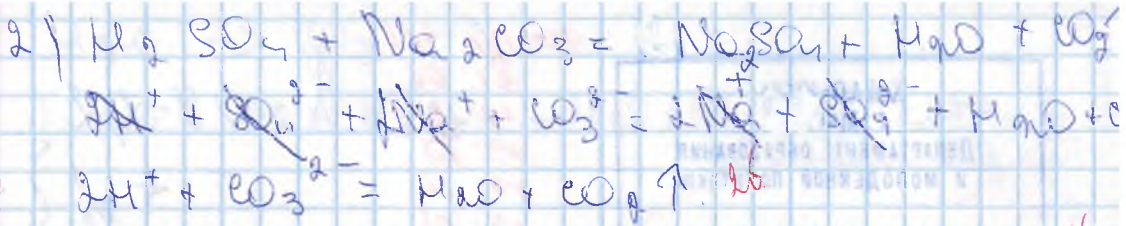 2) H2SO4 + Na2CO3 = Na2SO4 + H2O + CO2↑
2H+ + SO4 2- + 2Na+ + CO3 2- = 2Na+ + SO4 2- + H2O + C
2H+ + CO3 2- = H2O + CO2↑ 2б